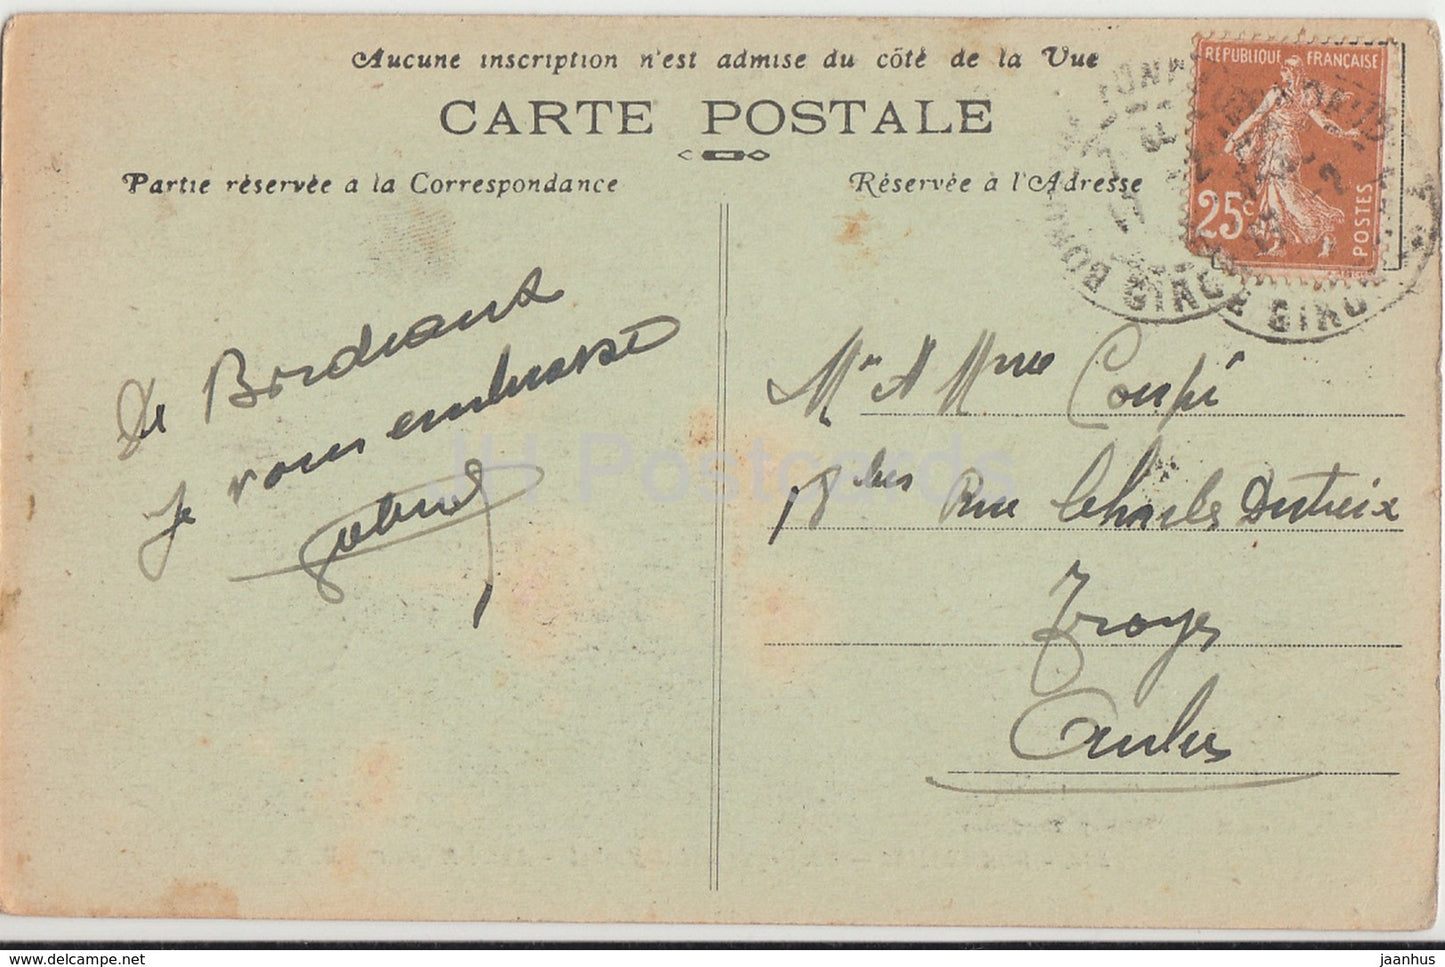 Aucune inscription n'est admise du côté de la Vue
CARTE POSTALE
Partie réservée a la Correspondance
Réservée à l'Adresse
REPUBLIQUE FRANÇAISE
25c
POSTES
GIRONDE GIRONDE
De Bordeaux
je vous embrasse
Mr & Mme Coupé
18 bis Rue Charles Dutreix
Troyes
Aube
JH Postcards
jaanhus.com
jaanhus